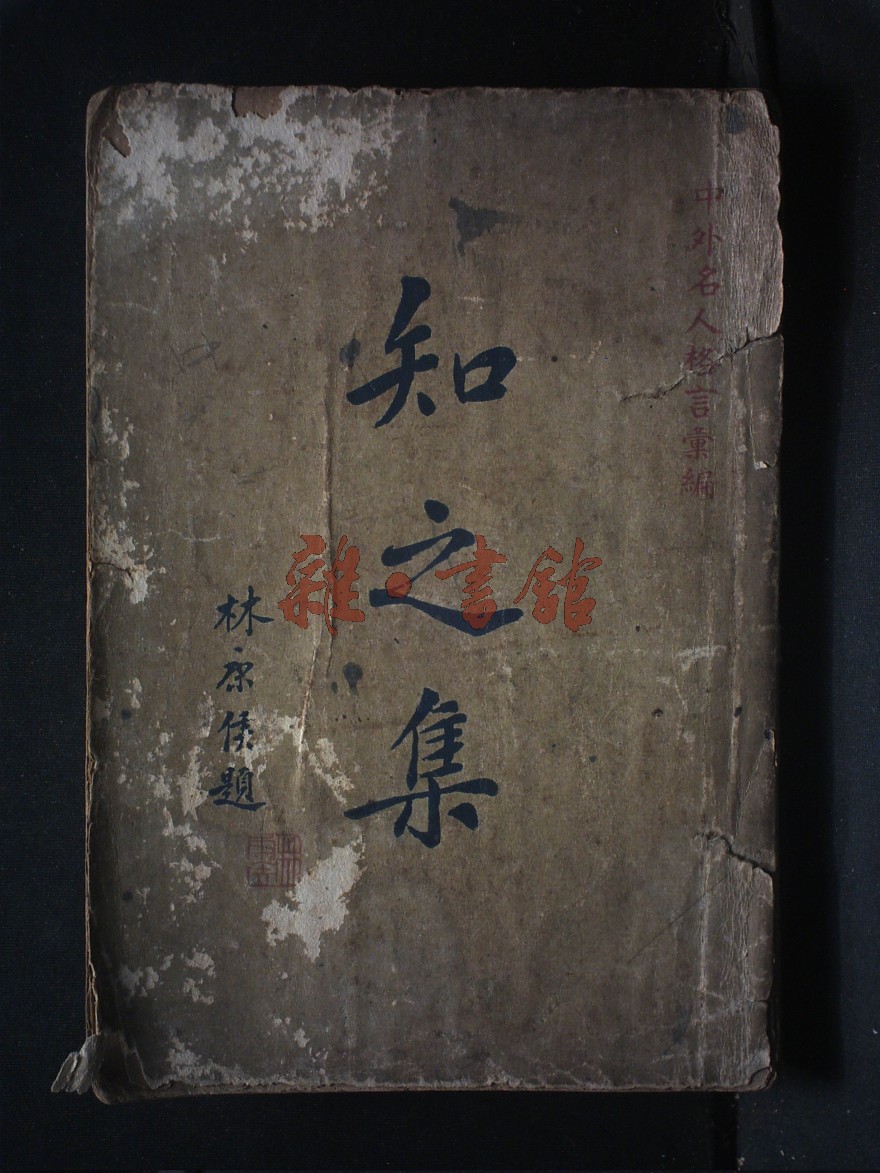 中外名人格言彙編
知之集
林康侯題
雜·書館